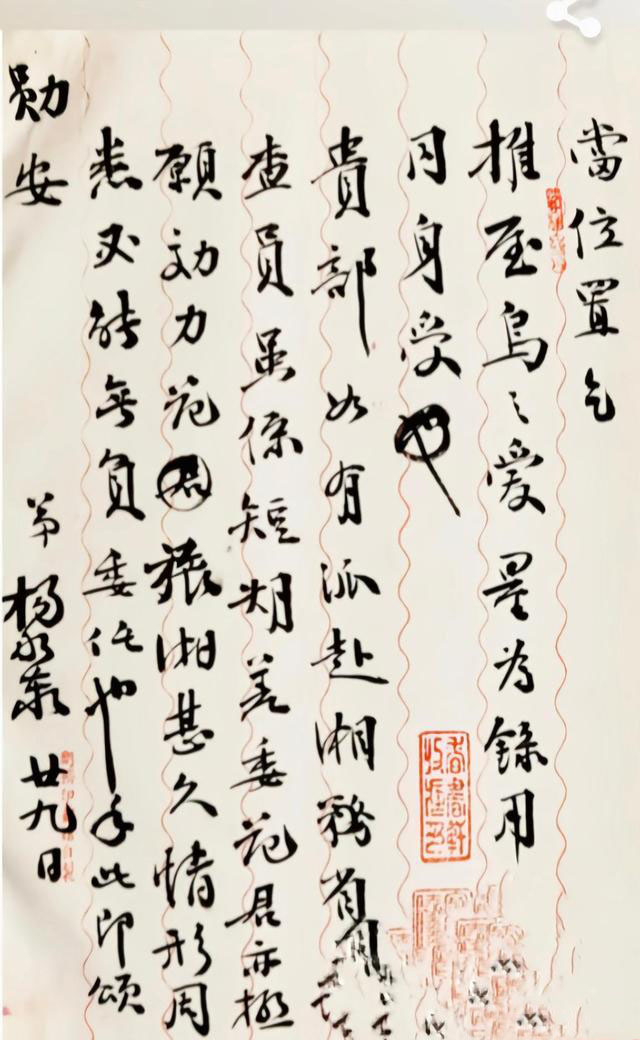 當位置乞
推屋烏之愛量為錄用
同身受也
貴部如有派赴湘
查員虽係短期差委范君亦極
願効力范君旅湘甚久情形周
悉必能無負委任也手此即頌
勛安
弟楊永泰廿九日